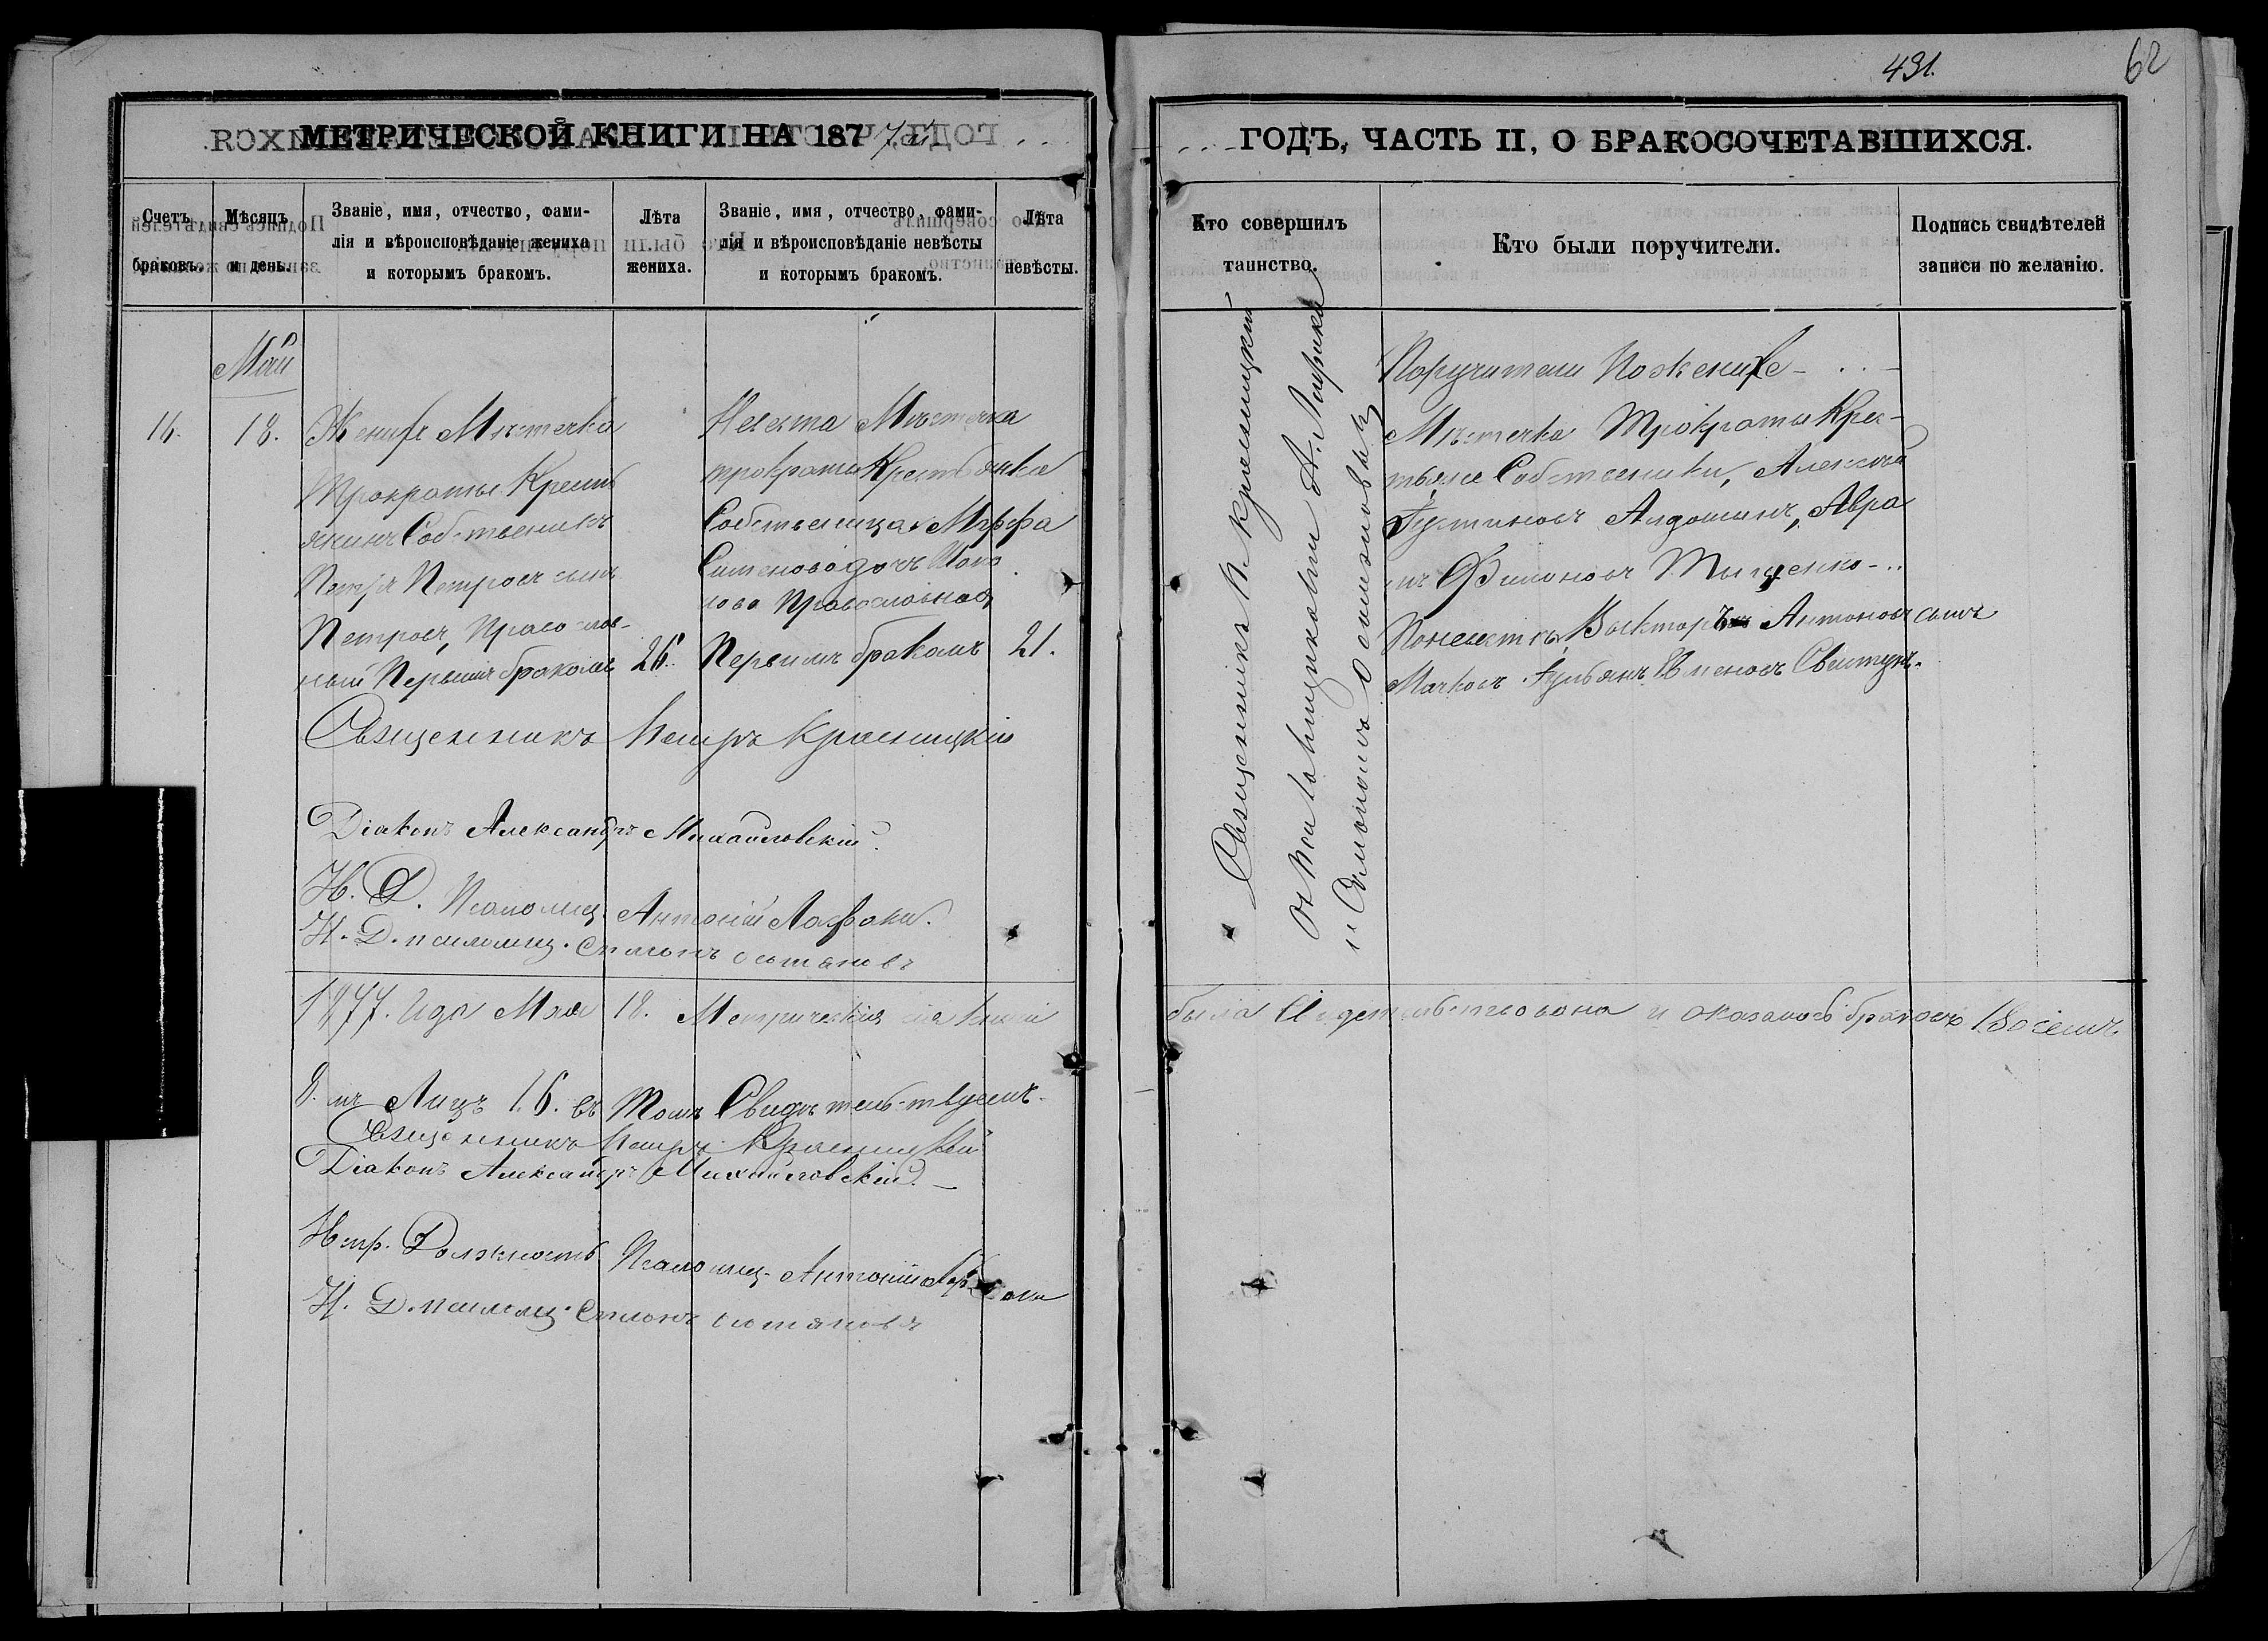 491.
62
МЕТРИЧЕСКОЙ КНИГИ НА 1877й
ГОДЪ, ЧАСТЬ II, О БРАКОСОЧЕТАВШИХСЯ.
Счетъ браковъ.
Мѣсяцъ и день.
Званіе, имя, отчество, фами-
лія и вѣроисповѣданіе жениха
и которымъ бракомъ.
Лѣта
жениха.
Званіе, имя, отчество, фами-
лія и вѣроисповѣданіе невѣсты
и которымъ бракомъ.
Лѣта
невѣсты.
Кто совершилъ
таинство.
Кто были поручители.
Подпись свидѣтелей
записи по желанію.
Май
16.
18.
Женихъ Мѣстечка
Трократы Кресть
янинъ Собственикъ
Петръ Петровъ сынъ
Петровъ, Православ-
ный Первымъ бракомъ
26.
Невеста Местечка
трократы Крестьянка
Собственица Марфа
дочь
Православная
Первимъ бракомъ
21.
Священникъ П. Красницкій
Поручители Поженихе
Мѣстечка Трократы Кре-
тьяне Собственики, Алексѣй
Устиновъ Алдошинъ, Авра
мъ Филоновъ Тыщенко
Поневестѣ, Викторъ Антоновъ сынъ
Мачковъ Свистунъ.
Священникъ Петръ Красницкій
Діаконъ Александръ Михайловскій.
И. Д. Псаломщ. Антоній
И. Д. псаломщ. Стасонъ
1877. года Мая 18. Метрическія сія книги
была Свидетельствована и оказалось браковъ Восемъ
8. мъ Лицъ 16. въ Томъ Свидѣтельствуемъ.
Священникъ Петръ Красницкій
Діаконъ Александръ Михайловскій.
Испр. Должность Псаломщ. Антоній
И. Д. псаломщ.